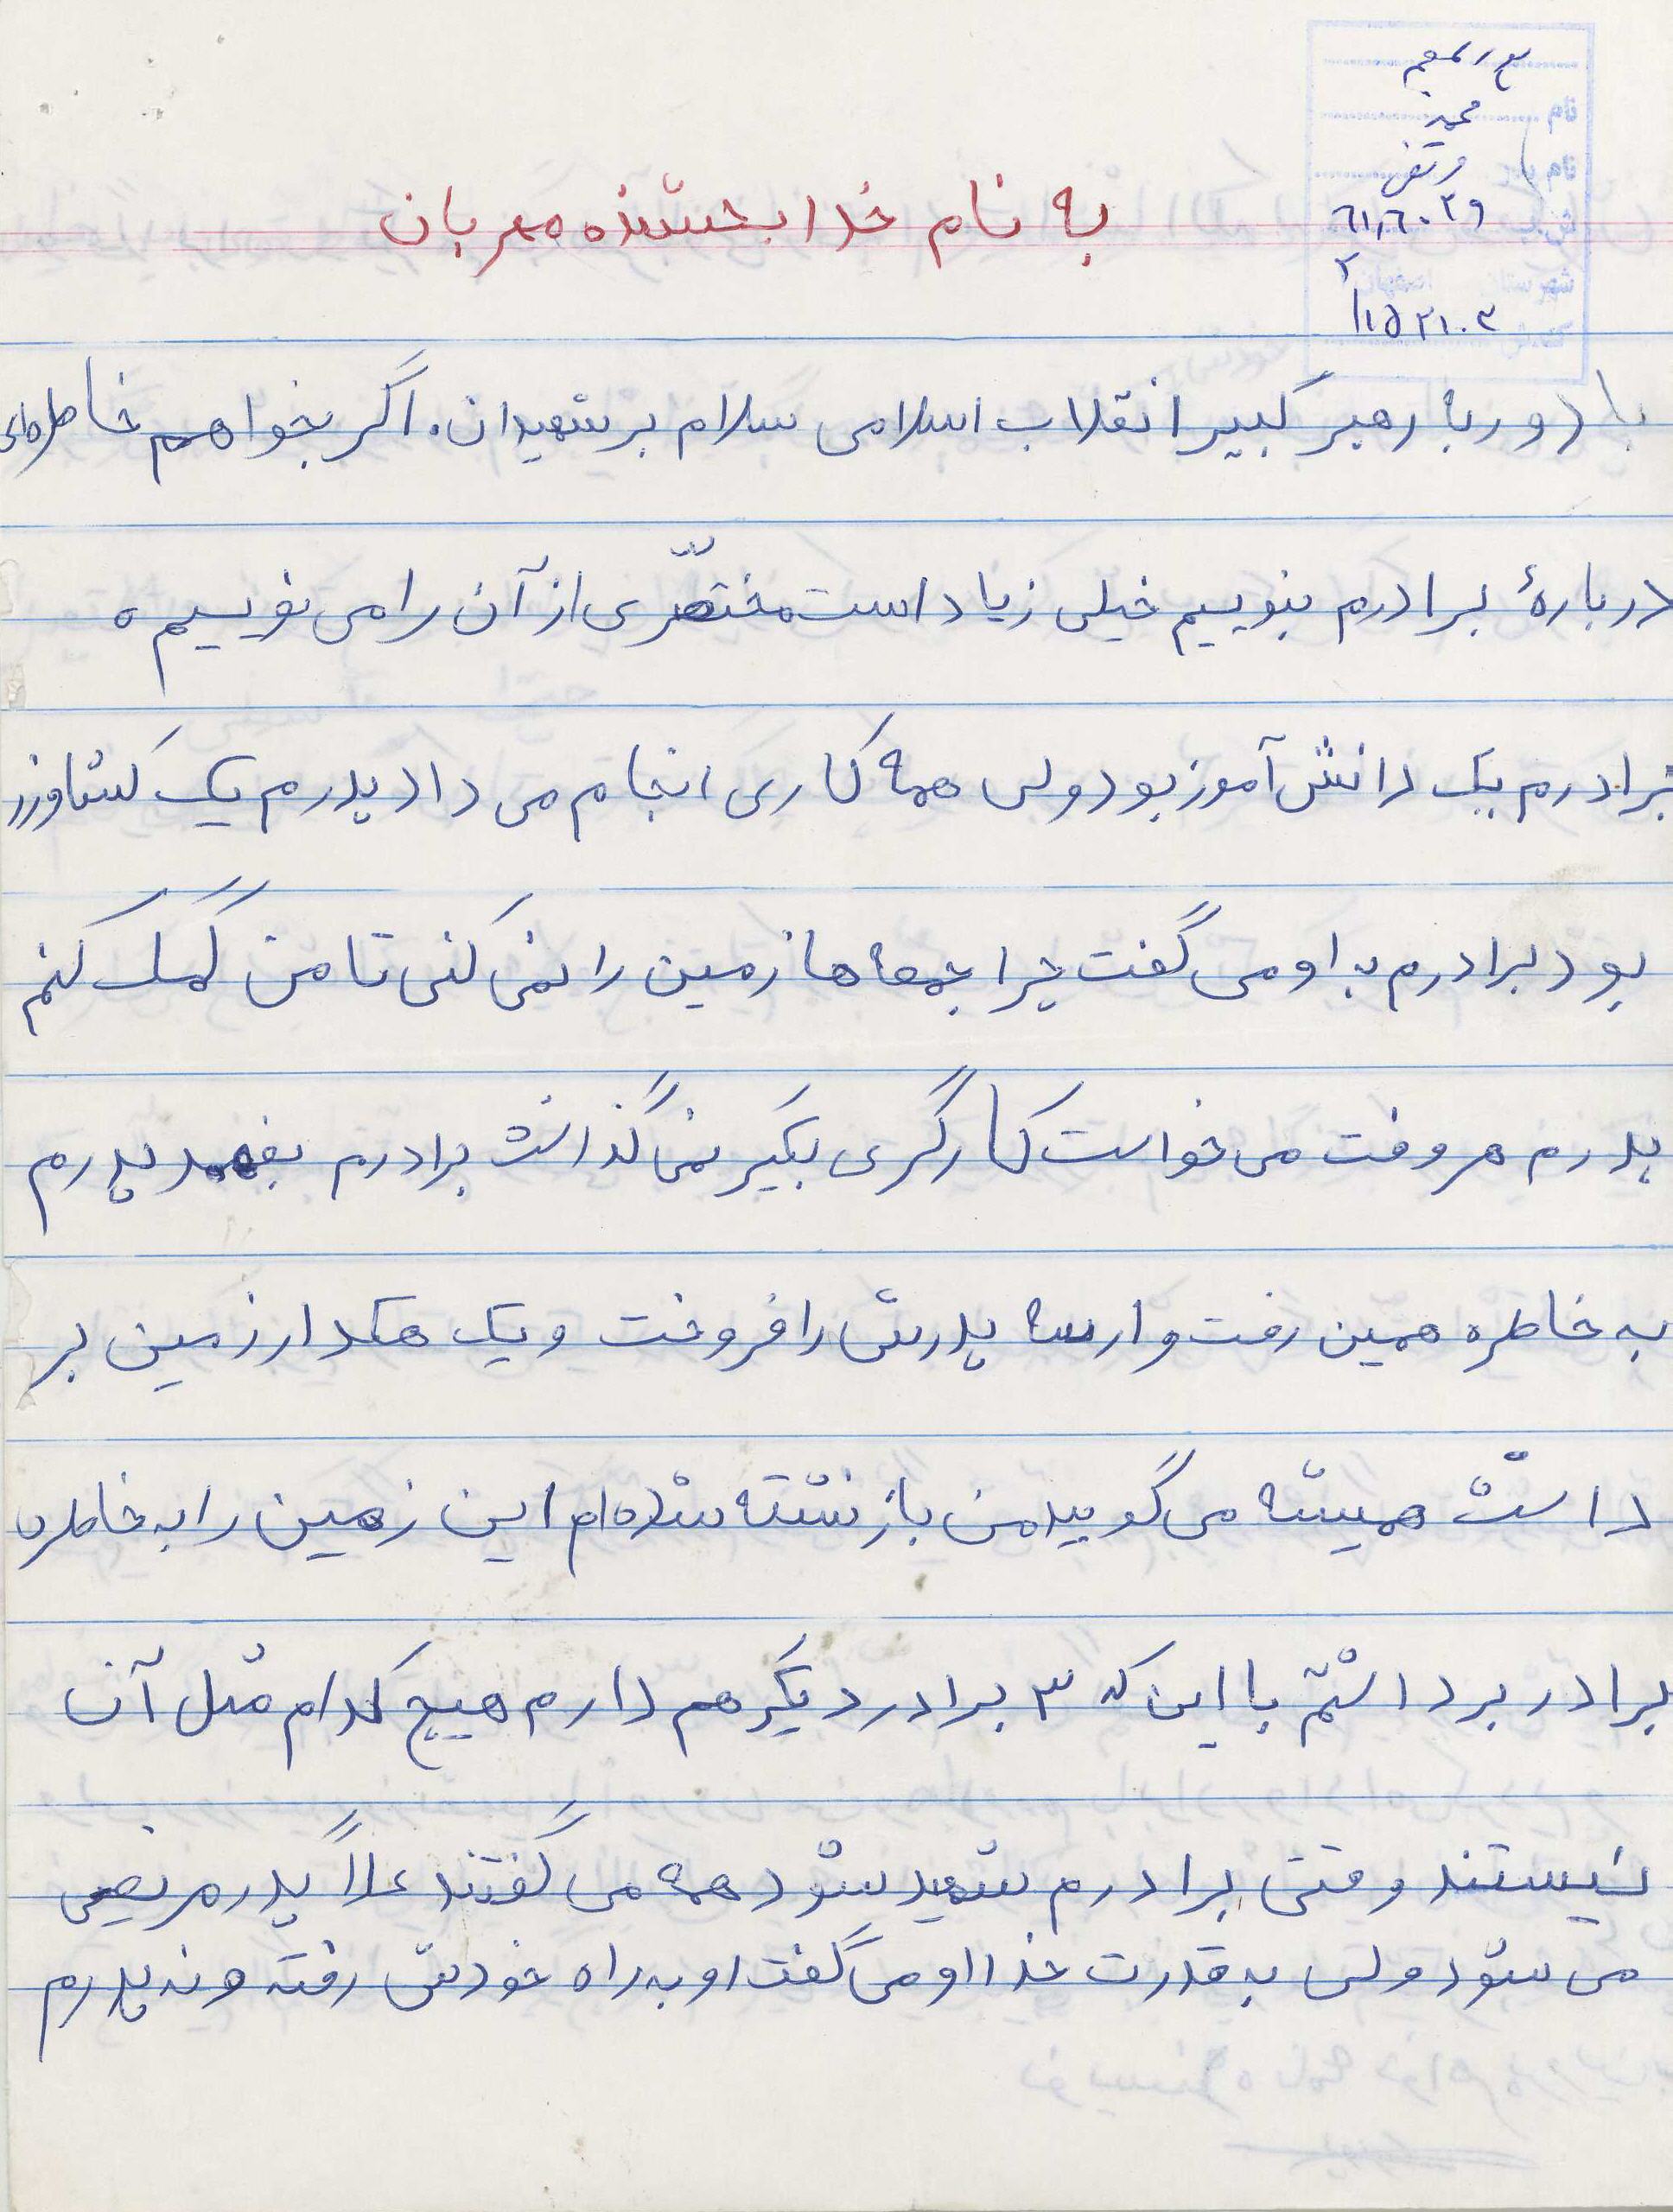 نام
محمد
نام پدر
مرتضی
به نام خدا بخشنده مهربان
با درود با رهبر کبیر انقلاب اسلامی سلام بر شهیدان. اگر بخواهم خاطره‌ای
دربارهٔ برادرم بنویسیم خیلی زیاد است مختصّری از آن را می نویسیم.
برادرم یک دانش آموز بود ولی همه کاری انجام می داد پدرم یک کشاورز
بود برادرم به او می گفت چرا جمعه ها زمین را نمی کنی تا من کمک کنم
پدرم هر وقت می خواست کارگری بگیر نمی گذاشت برادرم بفهمد پدرم
به خاطره همین رفت و ارسه پدرش را فروخت و یک هکدار زمین بر
داشت همیشه می گویید من بازنشته شده‌ام این زمین را به خاطره
برادر برداشتم با این که ۳ برادر دیگر هم دارم هیچ کدام مثل آن
نیستند وقتی برادرم شهید شود همه می گفتند علاً پدرم مریضی
می شود ولی به قدرت خدا او می گفت او به راه خودش رفته و نه پدرم